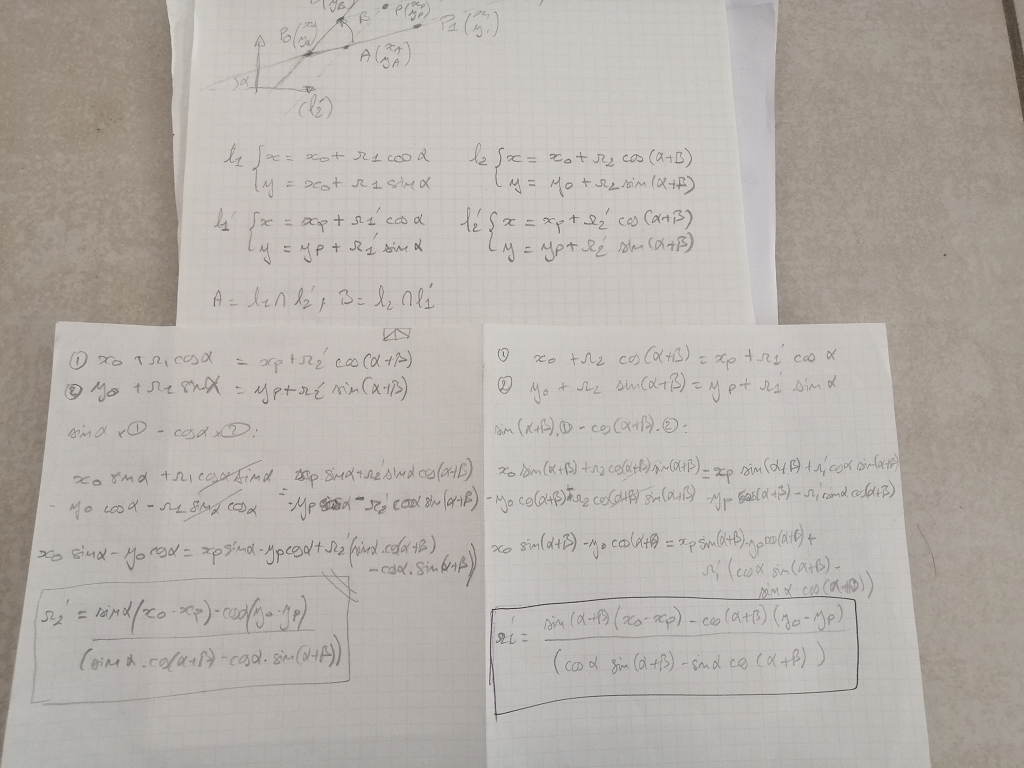 B(x y
B
P(xp yp)
P1(x1 y1)
A(xA yA)
α
(l2')
l1 { x = x0 + r1 cos α    l2 { x = x0 + r2 cos(α+β)
y = x0 + r1 sin α    y = y0 + r2 sin(α+β)
l1' { x = xp + r1' cos α    l2' { x = xp + r2' cos(α+β)
y = yp + r1' sin α    y = yp + r2' sin(α+β)
A = l1 ∩ l2', B = l2 ∩ l1'
① x0 + r1 cos α = xp + r2' cos(α+β)
② y0 + r1 sin α = yp + r2' sin(α+β)
sin α × ① - cos α × ② :
x0 sin α + r1 cos α sin α = xp sin α + r2' sin α cos(α+β)
- y0 cos α - r1 sin α cos α - yp cos α - r2' cos α sin(α+β)
x0 sin α - y0 cos α = xp sin α - yp cos α + r2' (sin α · cos(α+β)
- cos α · sin(α+β))
r2' = sin α (x0 - xp) - cos α (y0 - yp)
(sin α · cos(α+β) - cos α · sin(α+β))
① x0 + r2 cos(α+β) = xp + r1' cos α
② y0 + r2 sin(α+β) = yp + r1' sin α
sin(α+β).① - cos(α+β).② :
x0 sin(α+β) + r2 cos(α+β) sin(α+β) = xp sin(α+β) + r1' cos α sin(α+β)
- y0 cos(α+β) - r2 cos(α+β) sin(α+β) - yp cos(α+β) - r1' sin α cos(α+β)
x0 sin(α+β) - y0 cos(α+β) = xp sin(α+β) - yp cos(α+β) +
r1' (cos α sin(α+β) -
sin α cos(α+β))
r1' = sin(α+β) (x0 - xp) - cos(α+β) (y0 - yp)
(cos α sin(α+β) - sin α cos(α+β))